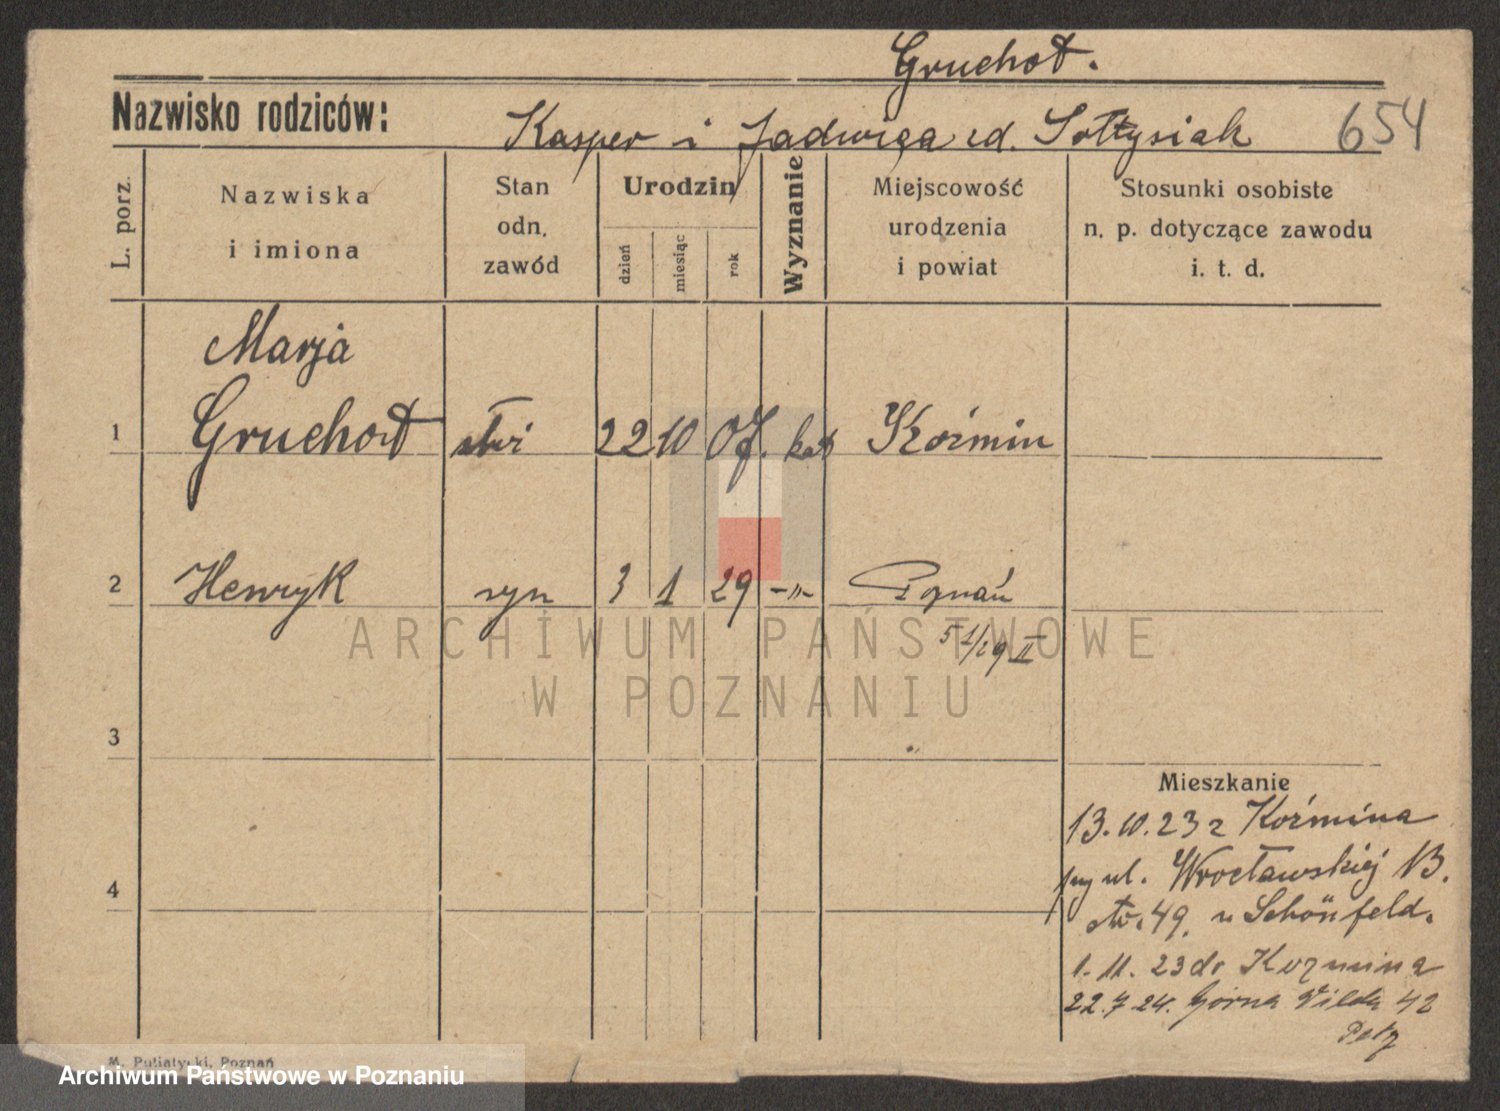 Gruchot.
Nazwisko rodziców: Kasper i Jadwiga zd. Sołtysiak 654
L. porz. Nazwiska i imiona Stan odn. zawód Urodzin dzień miesiąc rok Wyznanie Miejscowość urodzenia i powiat Stosunki osobiste n. p. dotyczące zawodu i. t. d.
Marja
1 Gruchot 22 10 07. kat Koźmin
2 Henryk syn 3 1 29 -"- Poznań
5 1/29 II
ARCHIWUM PAŃSTWOWE
W POZNANIU
3
Mieszkanie
13.10.23 z Koźmina
ul. Wrocławskiej 13.
49. u Schönfeld.
4
1.11.23 do Kozmina
22.7.24. Górna Wilda 42
M. Puliatycki, Poznań
Archiwum Państwowe w Poznaniu